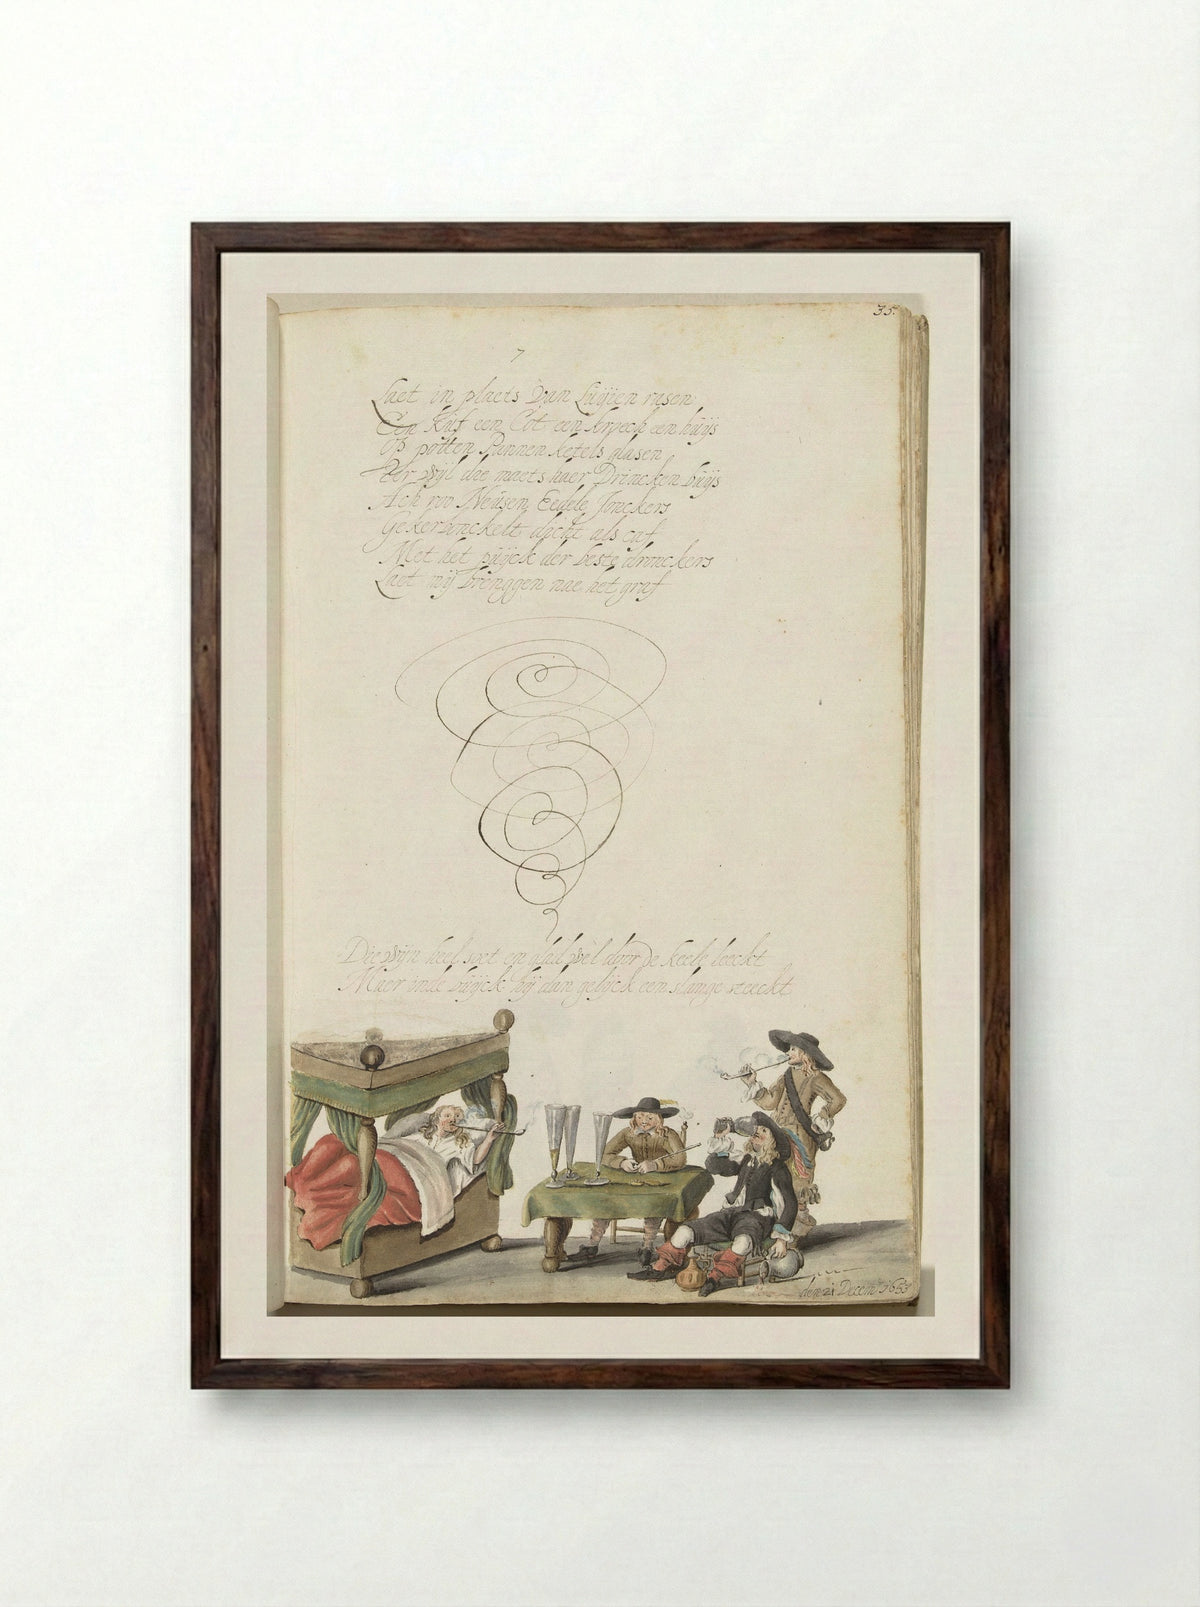 35.
7
Laet in plaets Van Luijen rasen
Een Kuf een Cot een kroeck een huijs
op potten Pannen ketels glasen
Ter wyl dee maets haer Drincken buijs
Ach roo Neusen Eedele Jonckers
dicht als caf
Met het puijck der beste dronckers
Laet mij brenggen nae het graf
Die wijn heel soet en glad wel door de keele leeckt
Maer inde buijck hij dan gelijck een slange steeckt
den 21 Decem 1653